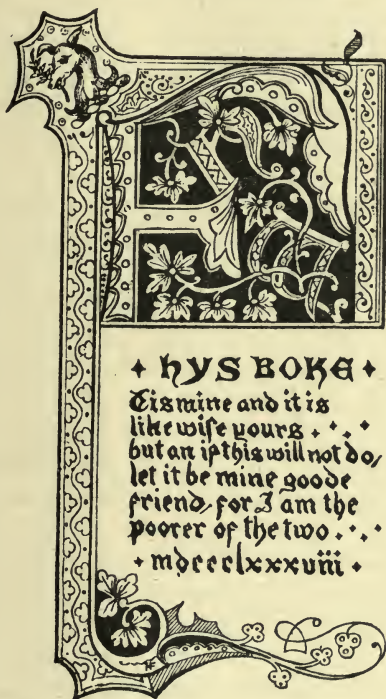 hys boke
Tis mine and it is
like wise yours
but an if this will not do,
let it be mine goode
friend, for I am the
poorer of the two
mdccclxxxviii